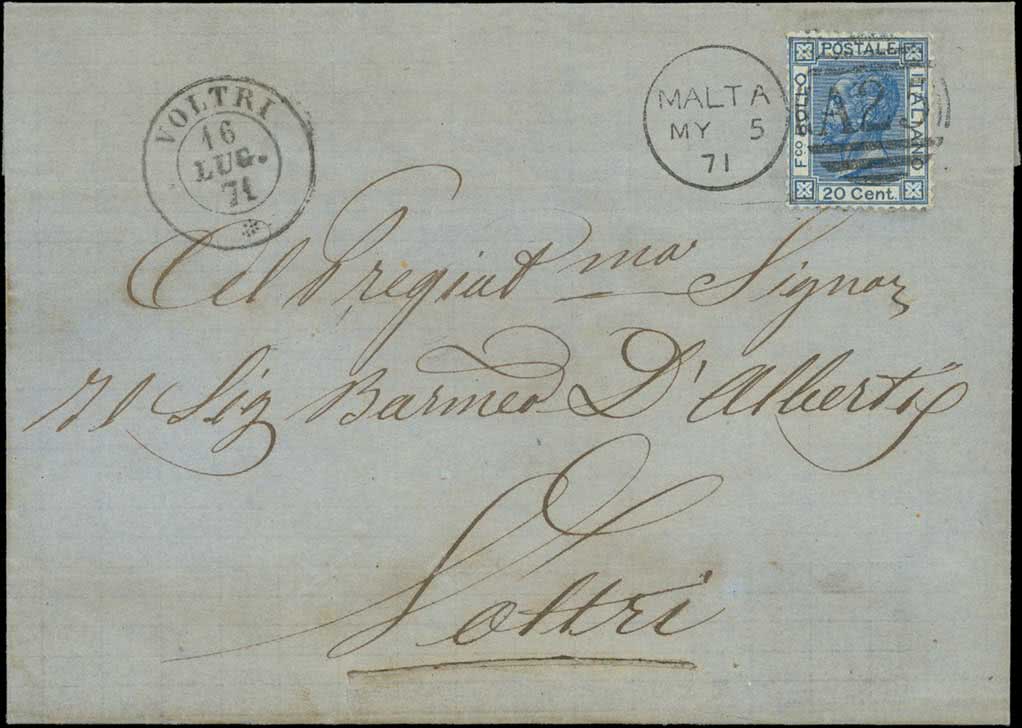 VOLTRI
16
LUG.
71
MALTA
MY 5
71
POSTALE
Fco BOLLO
ITALIANO
20 Cent.
A25
Al Pregiat mo Signor
Sig Barmeo D'Albertis
Voltri